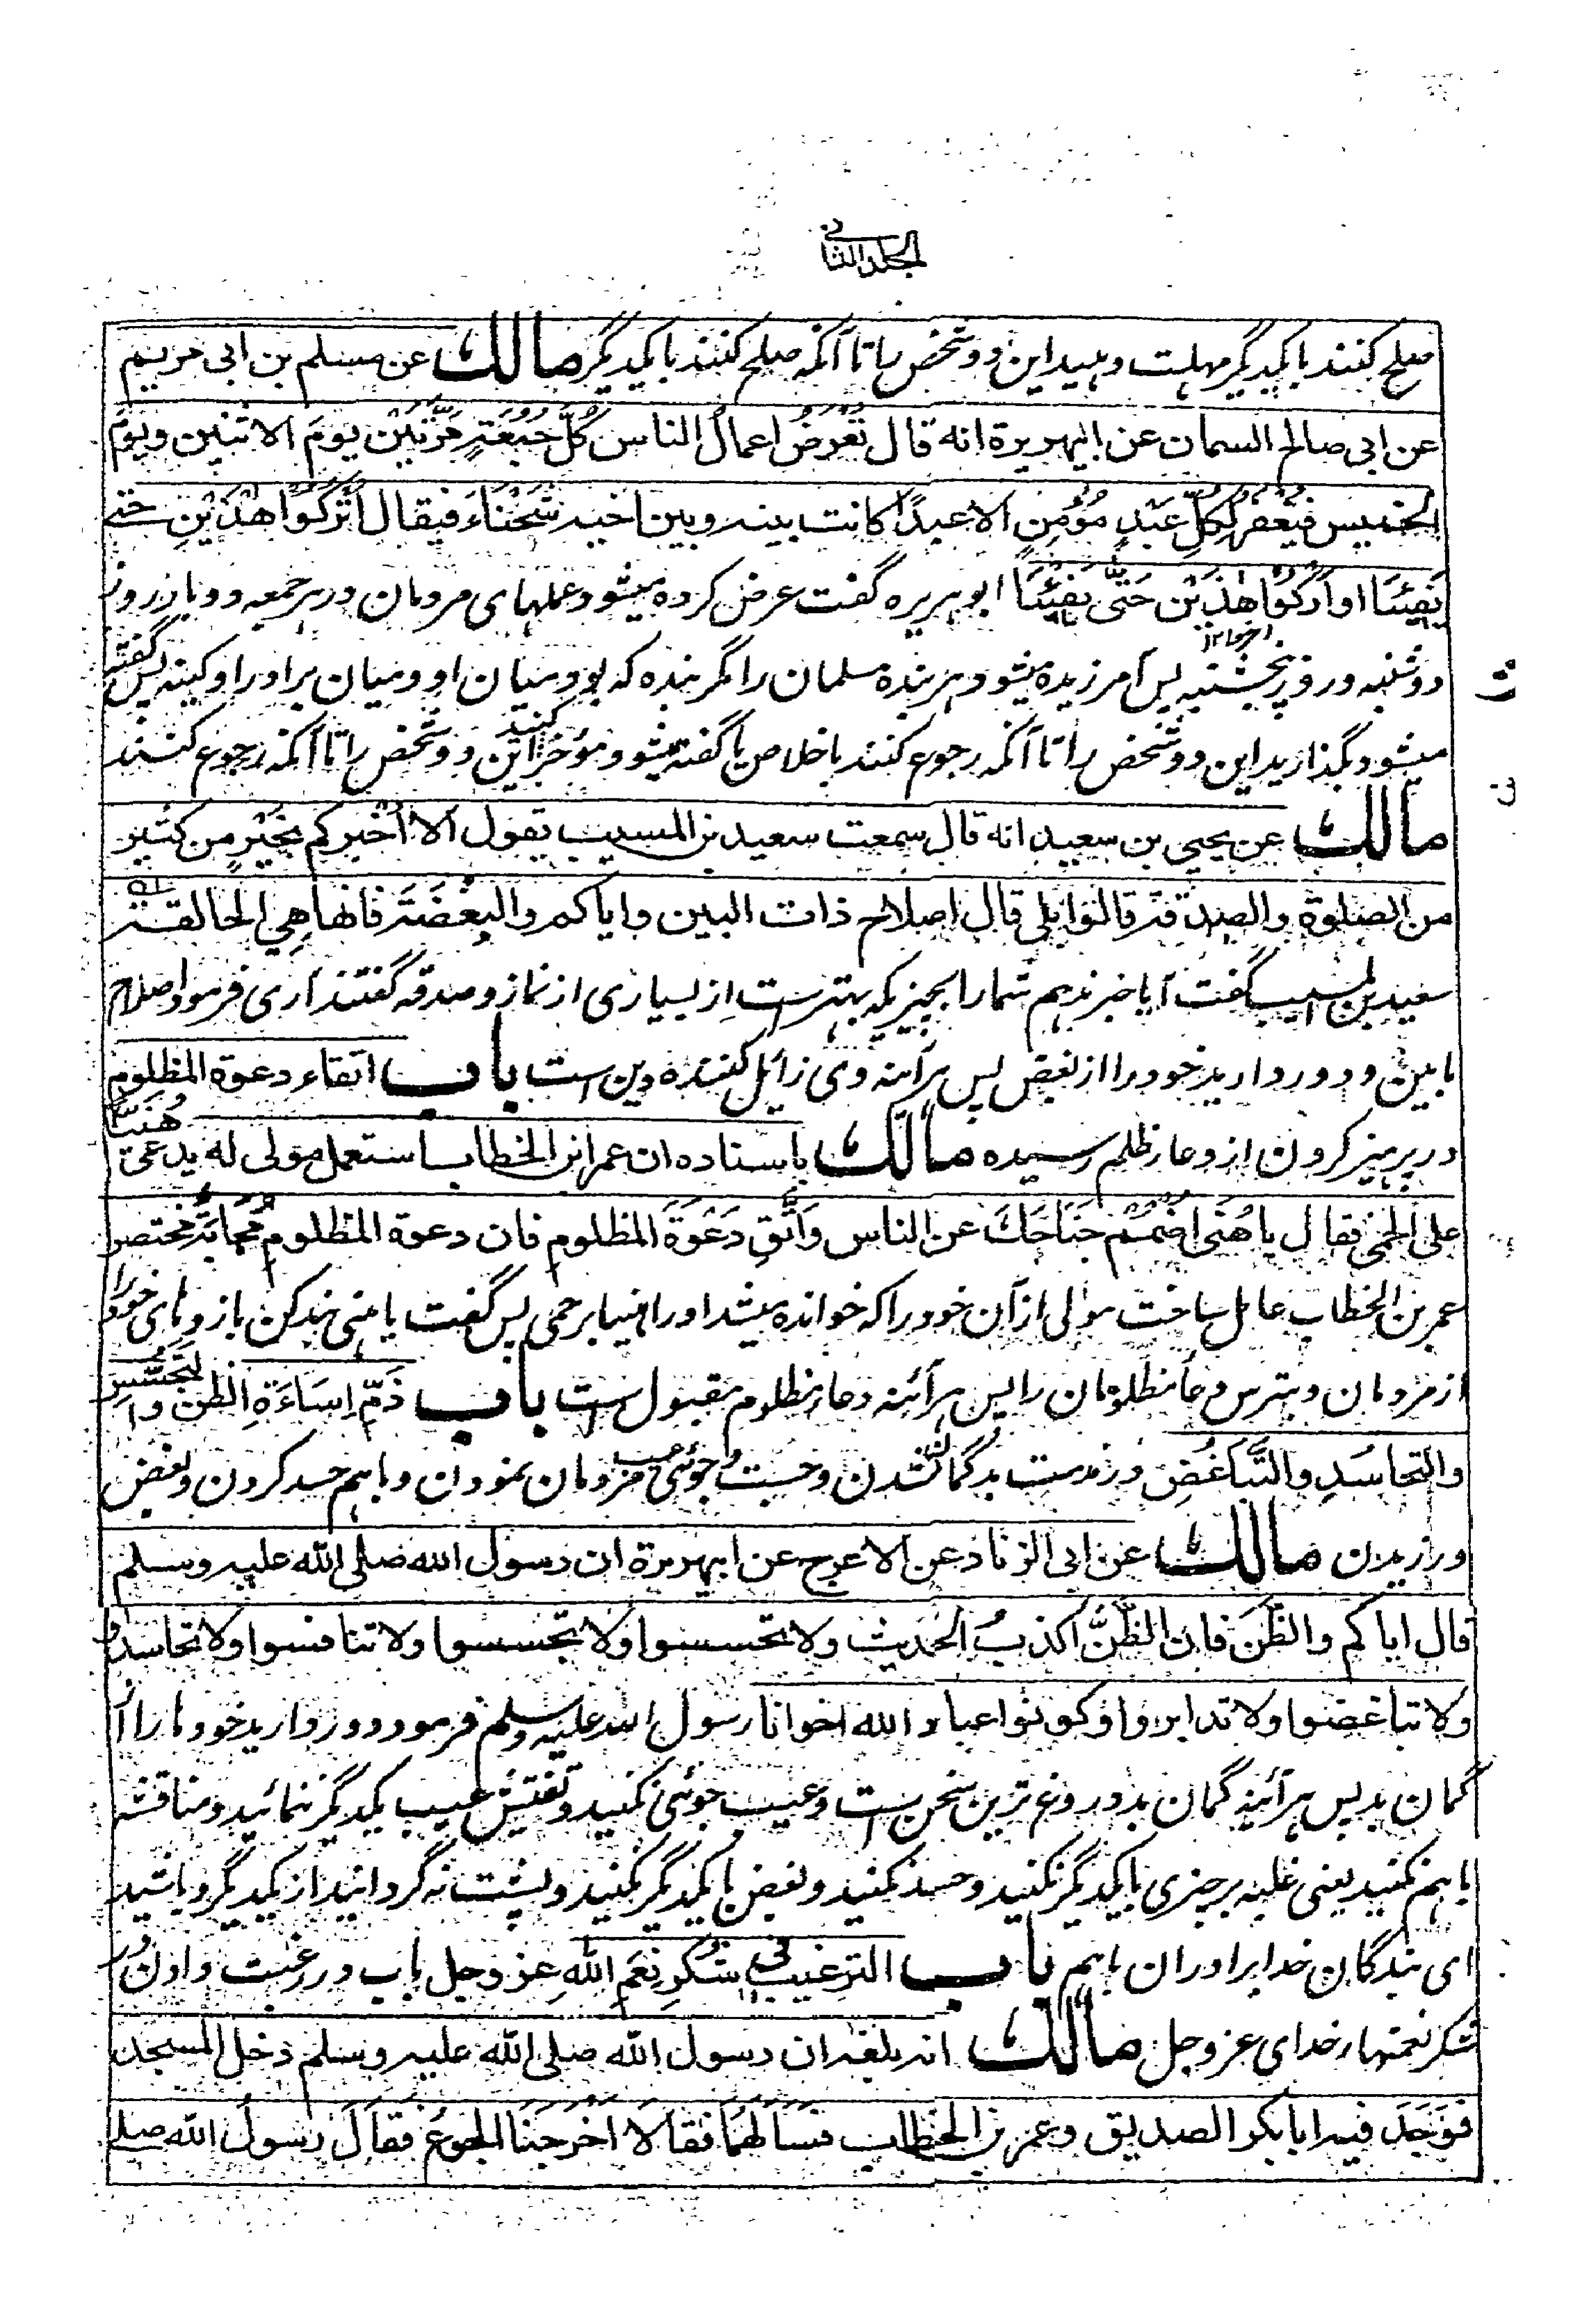 الجلد الثانی
صلح کنند با یکدیگر مهلت دهید این دو شخص را تا آنکه صلح کنند با یکدیگر مالك عن مسلم بن ابی مریم
عن ابی صالح السمان عن ابیهریرة انه قال تُعْرَضُ اعمالُ الناس كُلَّ جُمُعَةٍ مَرَّتَیْن یومَ الاثنین ویومَ
الخمیس فیُغْفَر لِکُلِّ عَبْدٍ مُؤْمِنٍ الا عبدًا کانت بینه وبین اخیه شَحْنَاءَ فیقال اُتْرُکُوا هٰذَیْنِ حتی
یَفِیْئَا او اَرْکُوْا هٰذَیْن حَتّٰی یَفِیْئَا ابو هریره گفت عرض کرده میشود عملهای مردمان در هر جمعه دو بار روز
دوشنبه و روز پنجشنبه پس آمرزیده میشود هر بنده مسلمان را مگر بنده که بود میان او و میان برادر او کینه پس گفته
میشود بگذارید این دو شخص را تا آنکه رجوع کنند باخلاص یا گفته میشود مؤخر کنید این دو شخص را تا آنکه رجوع کنند
مالك عن یحیی بن سعید انه قال سمعت سعید بن المسیب یقول اَلا اُخْبِرکم بخَیْرٍ من کثیر
من الصلوة والصدقة قالوا بلی قال اصلاح ذات البین وایاکم والبِغْضَةَ فانها هِیَ الحالقة
سعید بن المسیب گفت آیا خبر ندهم شما را بچیزیکه بهتر ست از بسیاری از نماز و صدقه گفتند آری فرمود اصلاح
مابین و دور دارید خود را از بغض پس هرآئنه وی زائل کننده دین است باب اتقاء دعوة المظلوم
در پرهیز کردن از دعاء ظلم رسیده مالك باسناده ان عمر ابن الخطاب استعمل مولی له یدعی هُنَیًّا
علی الحمی فقال یا هُنَی اضْمُمْ جَنَاحَكَ عن الناس وَاتَّقِ دَعْوَةَ المظلوم فان دعوة المظلومِ مُجَابَةٌ مختصر
عمر بن الخطاب عامل ساخت مولی از آن خود را که خوانده میشد او را هنیا بر حمی پس گفت یا هنی بند کن بازوهای خود را
از مردمان و بترس دعاء مظلومان را پس هرآئنه دعاء مظلوم مقبول ست باب ذَمِّ اِسَاءَةِ الظن والتَّجَسُّسِ
والتحاسُدِ والتَّبَاغُضِ در مذمت بدگمان شدن و جست و جوئی عیب مردمان نمودن و باهم حسد کردن و بغض
ورزیدن مالك عن ابی الزناد عن الاعرج عن ابیهریرة ان رسول الله صلی الله علیه وسلم
قال ایاکم والظَّنَ فان الظَّنَّ اکذبُ الحَدیث ولا تحسسوا ولا تجسسوا ولا تنافسوا ولا تحاسدوا
ولا تباغضوا ولا تدابروا وکونوا عباد الله اخوانا رسول الله علیه وسلم فرمود دور دارید خودها را از
گمان بد پس هرآئینه گمان بد دروغ ترین سخن ست و عیب جوئی نکنید و تفتیش عیب یکدیگر ننمائید و مناقشه
باهم نکنید یعنی غلبه بر چیزی با یکدیگر نکنید و حسد نکنید و بغض با یکدیگر نکنید و پشت نه گردانید از یکدیگر و باشید
ای بندگان خدا برادران باهم باب الترغیب فی شُکرِ نِعَمِ اللهِ عز وجل باب در رغبت دادن در
شکر نعمتهاء خدای عز وجل مالك انه بلغه ان رسول الله صلی الله علیه وسلم دخل المسجد
فوَجَدَ فیه ابا بکر الصدیق وعمر بن الخطاب فسَأَلَهُمَا فقالَا اَخْرَجَنَا الجوعُ فقَالَ رسولُ الله صلی